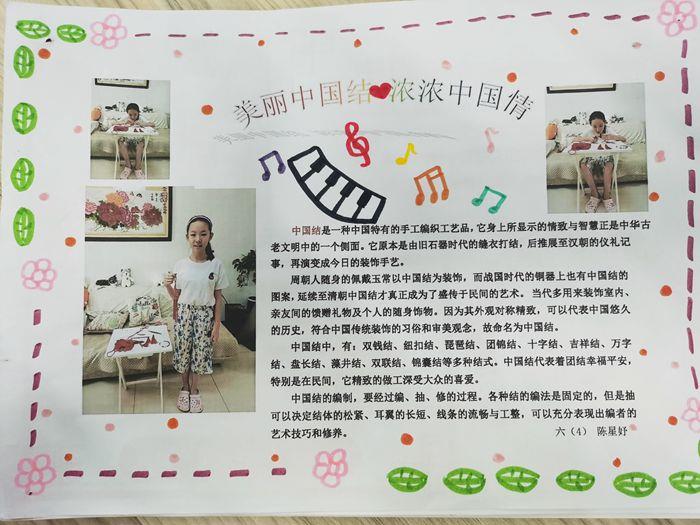 美丽中国结 浓浓中国情
中国结是一种中国特有的手工编织工艺品，它身上所显示的情致与智慧正是中华古
老文明中的一个侧面。它原本是由旧石器时代的缝衣打结，后推展至汉朝的仪礼记
事，再演变成今日的装饰手艺。
周朝人随身的佩戴玉常以中国结为装饰，而战国时代的铜器上也有中国结的
图案，延续至清朝中国结才真正成为了盛传于民间的艺术。当代多用来装饰室内、
亲友间的馈赠礼物及个人的随身饰物。因为其外观对称精致，可以代表中国悠久
的历史，符合中国传统装饰的习俗和审美观念，故命名为中国结。
中国结中，有：双钱结、纽扣结、琵琶结、团锦结、十字结、吉祥结、万字
结、盘长结、藻井结、双联结、锦囊结等多种结式。中国结代表着团结幸福平安，
特别是在民间，它精致的做工深受大众的喜爱。
中国结的编制，要经过编、抽、修的过程。各种结的编法是固定的，但是抽
可以决定结体的松紧、耳翼的长短、线条的流畅与工整，可以充分表现出编者的
艺术技巧和修养。
六（4） 陈星妤